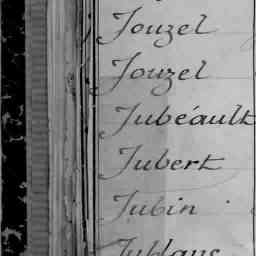 Jouzel
Jouzel
Jubéault
Jubert
Jubin